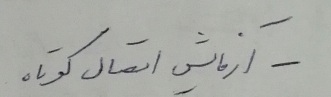 - آزمایش اتصال کوتاه